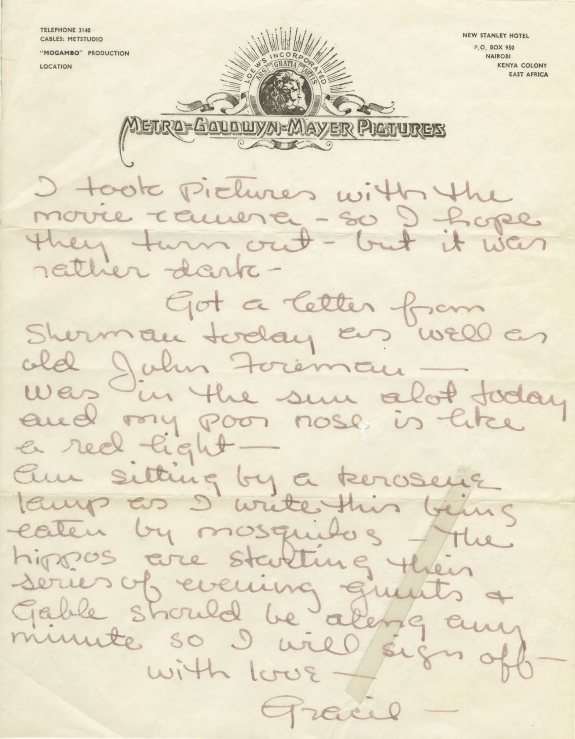 TELEPHONE 3140
CABLES: METSTUDIO
"MOGAMBO" PRODUCTION
LOCATION
NEW STANLEY HOTEL
P.O. BOX 950
NAIROBI
KENYA COLONY
EAST AFRICA
LOEW'S INCORPORATED
ARS GRATIA ARTIS
METRO-GOLDWYN-MAYER PICTURES
I took pictures with the
movie camera - so I hope
they turn out - but it was
rather dark -
Got a letter from
Sherman today as well as
old John Foreman —
was in the sun alot today
and my poor nose is like
a red light —
am sitting by a kerosene
lamp as I write this being
eaten by mosquitos - the
hippos are starting their
series of evening grunts &
Gable should be along any
minute so I will sign off —
with love —
Gracie —